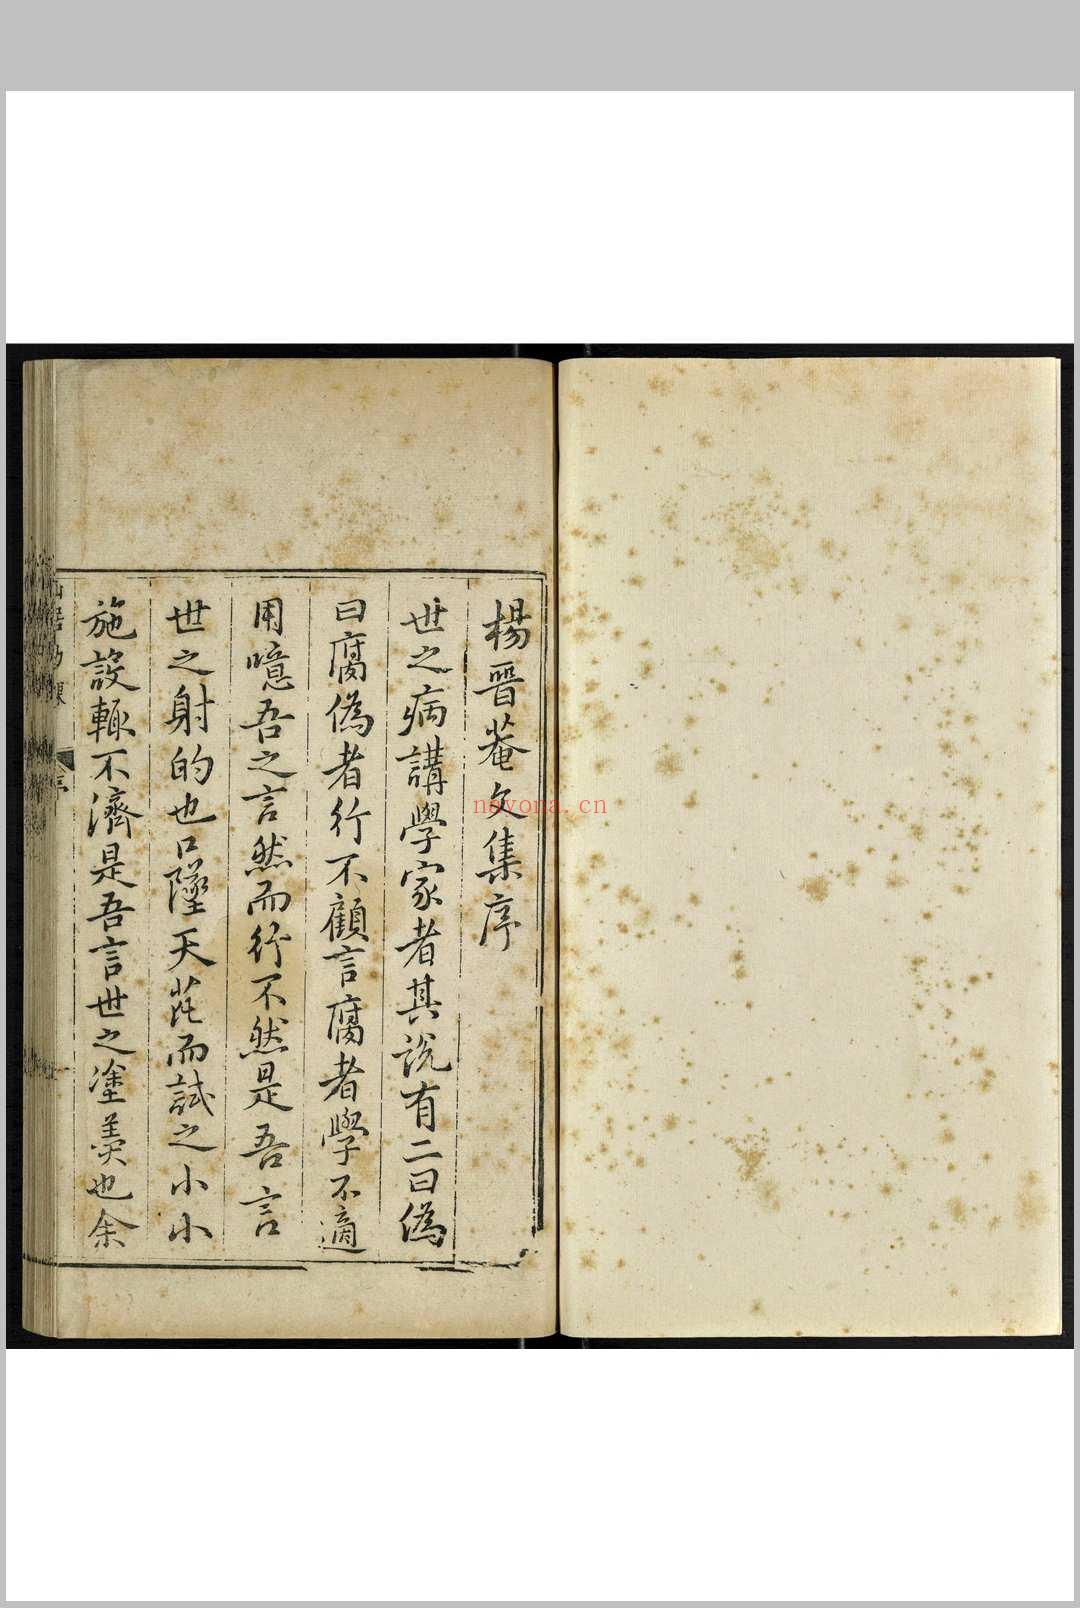 楊晉菴文集序
世之病講學家者其説有二曰僞
曰腐僞者行不顧言腐者學不適
用噫吾之言然而行不然是吾言
世之射的也口墜天花而試之小小
施設輒不濟是吾言世之塗羹也余
山居功課
序
novona.cn